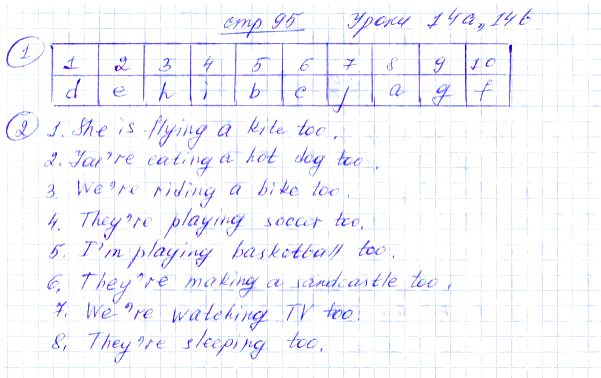 стр 95 Уроки 14a, 14b
1
1 2 3 4 5 6 7 8 9 10
d e h i b c j a g f
2 1. She is flying a kite too.
2. You're eating a hot dog too.
3. We're riding a bike too.
4. They're playing soccer too.
5. I'm playing basketball too.
6. They're making a sandcastle too.
7. We're watching TV too.
8. They're sleeping too.